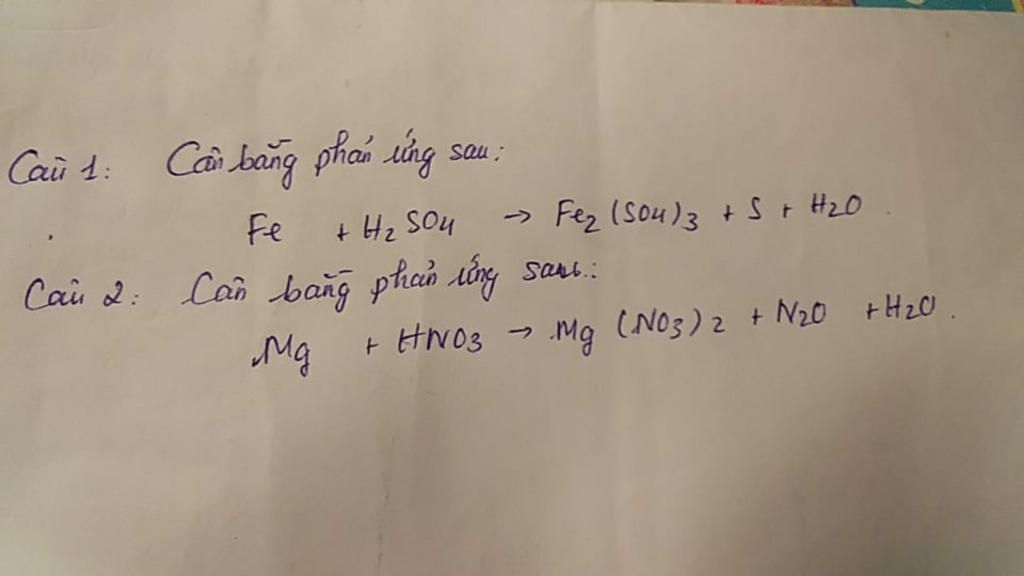 Câu 1: Cân bằng phản ứng sau:
Fe + H2SO4 → Fe2(SO4)3 + S + H2O
Câu 2: Cân bằng phản ứng sau:
Mg + HNO3 → Mg(NO3)2 + N2O + H2O.